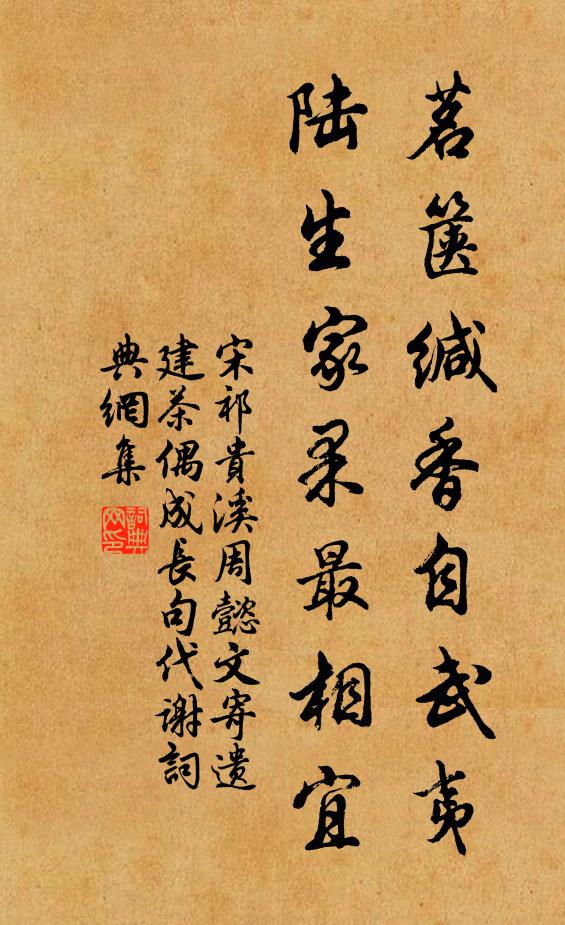 茗篋緘香自武夷
陆生家果最相宜
宋祁貴溪周懿文寄遺
建茶偶成長句代谢詞
典網集
詞典網印